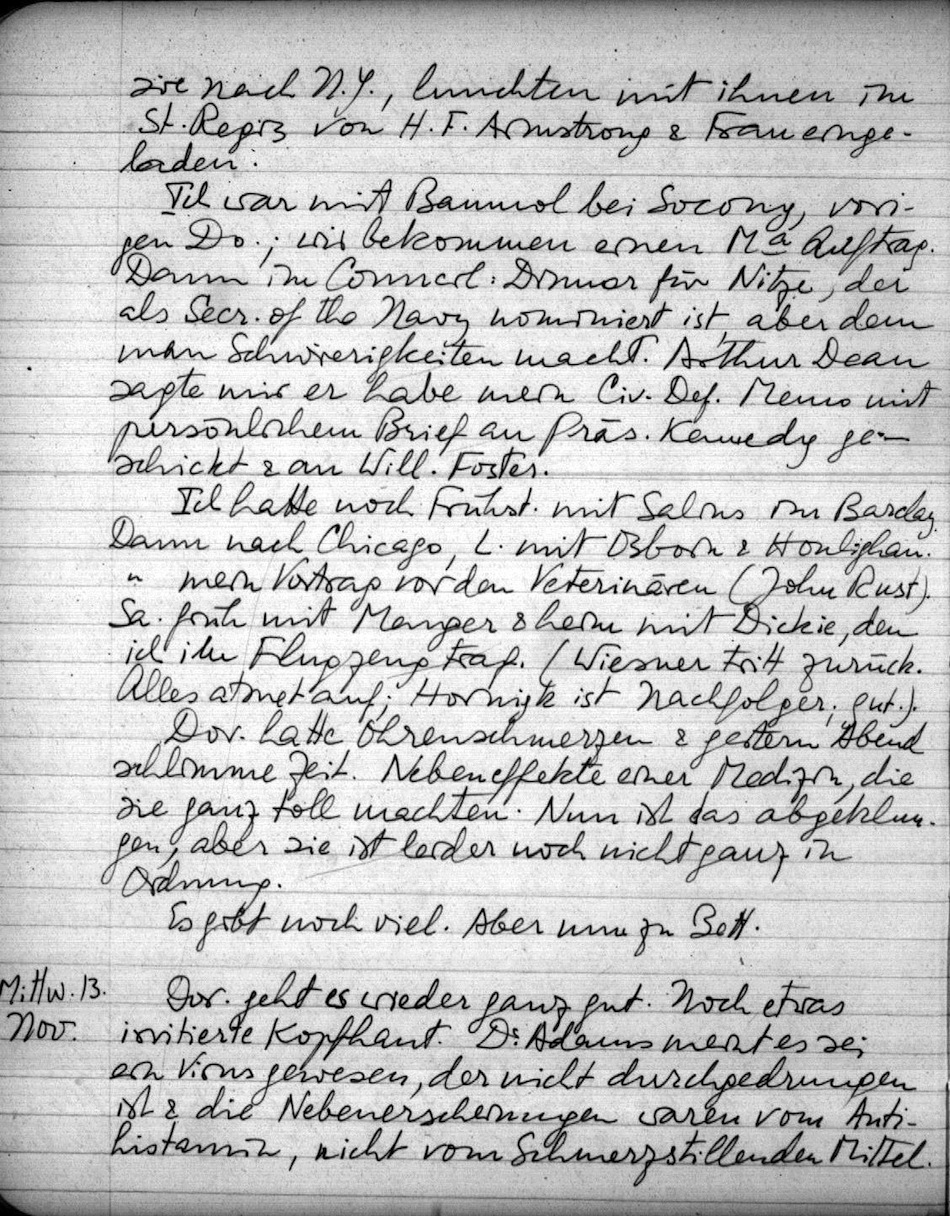 sie nach N.Y., lunchten mit ihnen im
St. Regis von H. F. Armstrong & Frau einge-
laden.
Ich war mit Baumol bei Socony, vori-
gen Do.; wir bekommen einen Ma Auftrag.
Dann im Council: Dinner für Nitze, der
als Secr. of the Navy nominiert ist, aber dem
man Schwierigkeiten macht. Arthur Dean
sagte mir er habe mein Civ. Def. Memo mit
persönlichem Brief an Präs. Kennedy ge-
schickt & an Will. Foster.
Ich hatte noch Frühst. mit Salins im Barclay.
Dann nach Chicago, L. mit Osborn & Houlighan.
" mein Vortrag vor den Veterinären (John Rust).
Sa. früh mit Menger & heim mit Dickie, den
ich im Flugzeug traf. (Wiesner tritt zurück.
Alles atmet auf; Hornigk ist Nachfolger; gut.).
Dor. hatte Ohrenschmerzen & gestern Abend
schlimme Zeit. Nebeneffekte einer Medizin, die
sie ganz toll machten. Nun ist das abgeklun-
gen, aber sie ist leider noch nicht ganz in
Ordnung.
Es gibt noch viel. Aber nun zu Bett.
Mittw. 13.
Nov.
Dor. geht es wieder ganz gut. Noch etwas
irritierte Kopfhaut. Dr. Adams meint es sei
ein Virus gewesen, der nicht durchgedrungen
ist & die Nebenerscheinungen waren vom Anti-
histamin, nicht vom Schmerzstillenden Mittel.